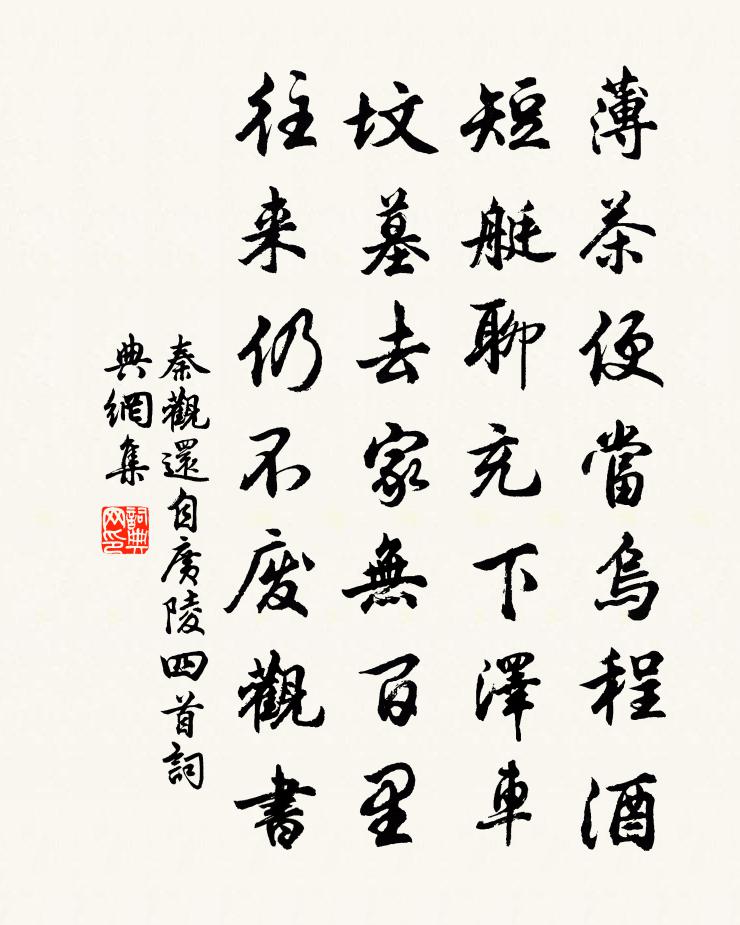 薄茶便當烏程酒
短艇聊充下澤車
坟墓去家無百里
往来仍不废觀書
秦觀還自廣陵四首詞
典網集
詞典
网印